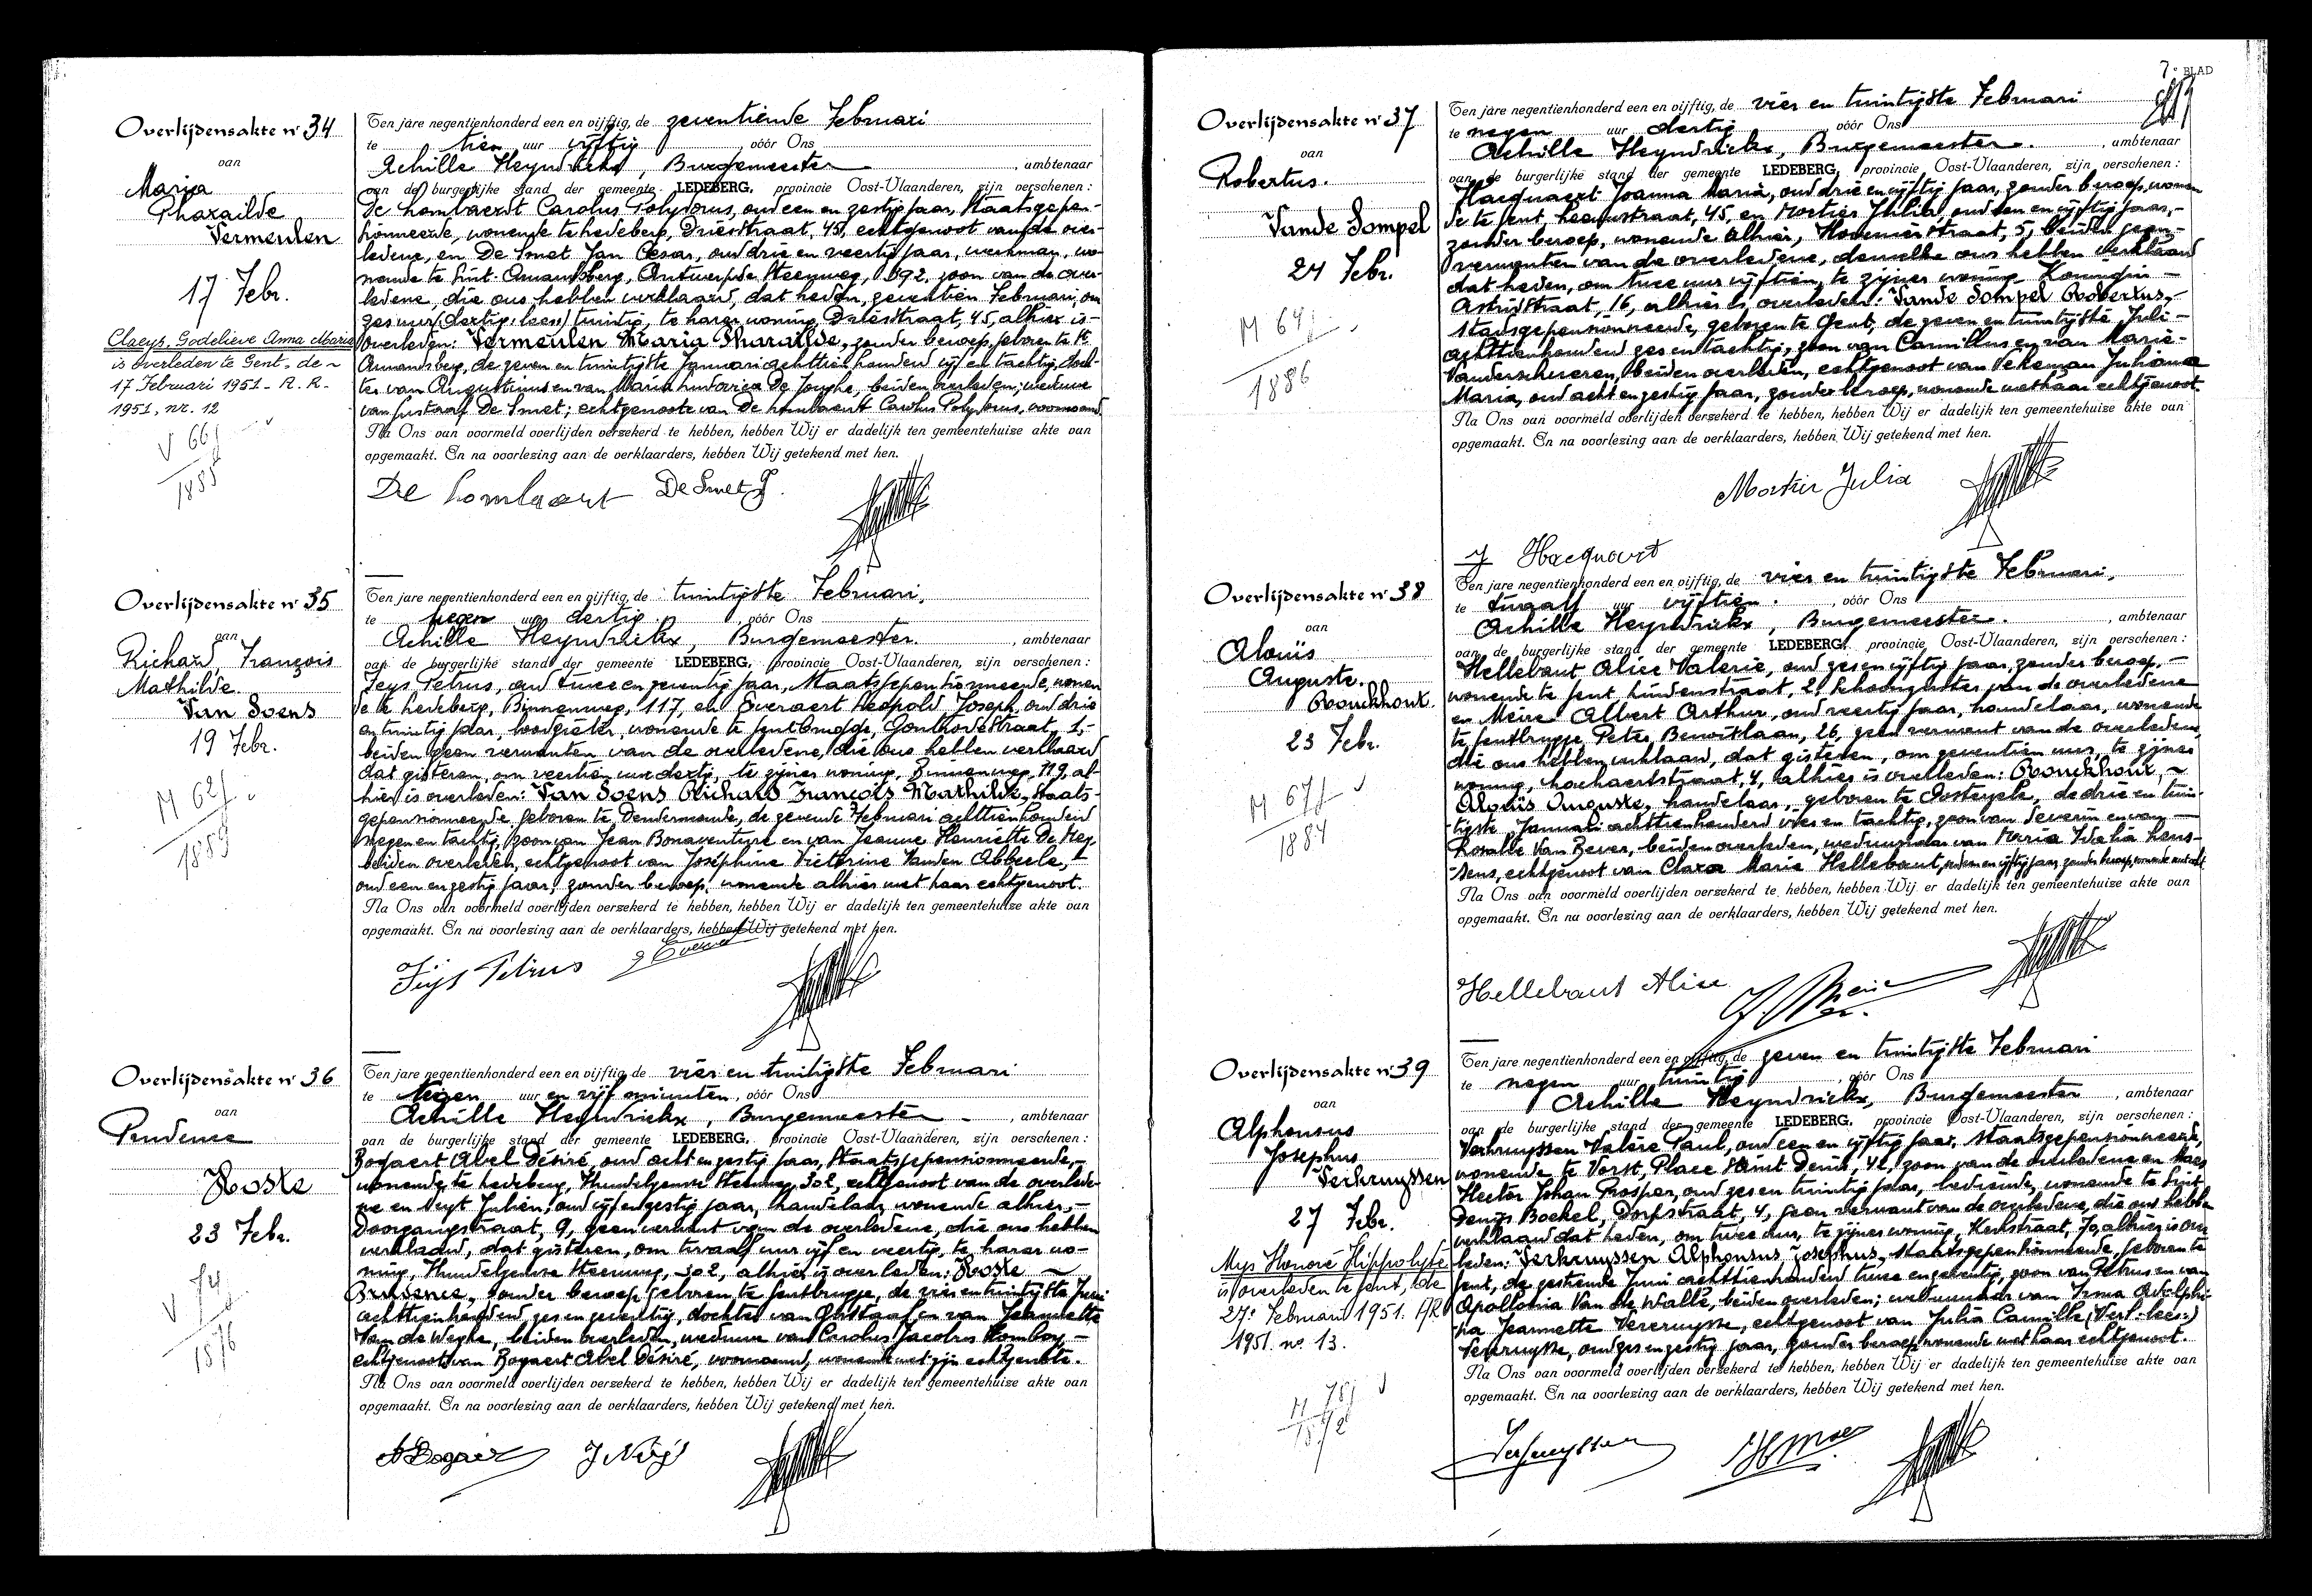 Overlijdensakte nr 34
van
Maria
Pharaïlde
Vermeulen
17 Febr.
Claeys, Godelieve Anna Maria
is overleden te Gent, de
17 Februari 1951 - A. R. -
1951, nr. 12
V 66j
1885
Ten jare negentienhonderd een en vijftig, de zeventiende Februari
te tien uur vijftig vóór Ons
Achille Heyndrickx, Burgemeester ambtenaar
van de burgerlijke stand der gemeente LEDEBERG, provincie Oost-Vlaanderen, zijn verschenen:
De Lombaerdt Carolus Polydorus, oud een en zestig jaar, Staatsgepen-
sionneerde, wonende te Ledeberg, Driesstraat, 45, echtgenoot van de over-
ledene, en De Smet Jan Cesar, oud drie en veertig jaar, werkman, wo-
nende te Sint-Amandsberg, Antwerpse Steenweg, 692, zoon van de over-
ledene, die ons hebben verklaard, dat heden, zeventien Februari, om
zes uur (dertig: lees) twintig, te harer woning, Driesstraat, 45, alhier is
overleden: Vermeulen Maria Pharaïlde, zonder beroep, geboren te St
Amandsberg, de zeven en twintigste Januari achttienhonderd vijf en tachtig, doch-
ter van Augustinus en van Maria Ludovica De Jonghe, beiden overleden; weduwe
van Gustaaf De Smet; echtgenote van De Lombaerdt Carolus Polydorus, voornoemd.
Na Ons van voormeld overlijden verzekerd te hebben, hebben Wij er dadelijk ten gemeentehuize akte van
opgemaakt. En na voorlezing aan de verklaarders, hebben Wij getekend met hen.
De Lombaert De Smet J.
Overlijdensakte nr 35
van
Richard, François
Mathilde.
Van Soens
19 Febr.
M 62j
1889
Ten jare negentienhonderd een en vijftig, de twintigste Februari,
te negen uur dertig vóór Ons
Achille Heyndrickx, Burgemeester. ambtenaar
van de burgerlijke stand der gemeente LEDEBERG, provincie Oost-Vlaanderen, zijn verschenen:
Feys Petrus, oud twee en zeventig jaar, Staatsgepensionneerde, wonen
de te Ledeberg, Binnenweg, 117, en Everaert Leopold Joseph, oud drie
en twintig jaar, loodgieter, wonende te Gentbrugge, Gonthodestraat, 1,-
beiden geen verwanten van de overledene, die ons hebben verklaard
dat gisteren, om veertien uur dertig, te zijner woning, Binnenweg, 119, al-
hier is overleden: Van Soens Richard François Mathilde, Staats-
gepensionneerde, geboren te Dendermonde, de zevende Februari achttienhonderd
negen en tachtig, zoon van Jean Bonaventure en van Jeanne Henriette De Mey
beiden overleden, echtgenoot van Joséphine Victorine Vanden Abbeele,
oud een en zestig jaar, zonder beroep, wonende alhier met haar echtgenoot.
Na Ons van voormeld overlijden verzekerd te hebben, hebben Wij er dadelijk ten gemeentehuize akte van
opgemaakt. En na voorlezing aan de verklaarders, hebben Wij getekend met hen.
Feys Petrus
Overlijdensakte nr 36
van
Prudence
Hoste
23 Febr.
V 74
1876
Ten jare negentienhonderd een en vijftig, de vier en twintigste Februari
te negen uur en vijf minuten, vóór Ons
Achille Heyndrickx, Burgemeester ambtenaar
van de burgerlijke stand der gemeente LEDEBERG, provincie Oost-Vlaanderen, zijn verschenen:
Bogaert Abel Désiré, oud acht en zestig jaar, Staatsgepensionneerde,-
wonende te Ledeberg, Hundelgemse Steenweg, 302, echtgenoot van de overlede-
ne en Nuyt Julien, oud vijf en zestig jaar, handelaar, wonende alhier,-
Doorgangstraat, 9, geen verwant van de overledene, die ons hebben
verklaard, dat gisteren, om twaalf uur vijf en veertig, te harer wo-
ning, Hundelgemse Steenweg, 302, alhier is overleden: Hoste
Prudence, zonder beroep, geboren te Gentbrugge, de vier en twintigste Juni
achttienhonderd zes en zeventig, dochter van Gustaaf en van Jeannette
Van de Weghe, beiden overleden, weduwe van Carolus Jacobus
echtgenoot van Bogaert Abel Désiré, voornoemd, wonende met zijn echtgenote.
Na Ons van voormeld overlijden verzekerd te hebben, hebben Wij er dadelijk ten gemeentehuize akte van
opgemaakt. En na voorlezing aan de verklaarders, hebben Wij getekend met hen.
ABogaert
7e BLAD
Overlijdensakte nr 37
van
Robertus.
Vande Sompel
24 Febr.
M 64j
1886
Ten jare negentienhonderd een en vijftig, de vier en twintigste Februari
te negen uur dertig vóór Ons
Achille Heyndrickx, Burgemeester. ambtenaar
van de burgerlijke stand der gemeente LEDEBERG, provincie Oost-Vlaanderen, zijn verschenen:
Hacquaert Joanna Maria, oud drie en vijftig jaar, zonder beroep, wonen
de te Gent, Leeuwstraat, 45, en Mortier Julia, oud een en vijftig jaar,-
zonder beroep, wonende alhier, Hovenierstraat, 5, beiden geen-
verwanten van de overledene, dewelke ons hebben verklaard
dat heden, om twee uur vijftien, te zijner woning Koningin
Astridstraat, 16, alhier is overleden: Vande Sompel Robertus,-
stadsgepensionneerde, geboren te Gent, de zeven en twintigste Juli-
achttienhonderd zes en tachtig, zoon van Camillus en van Marie-
Vanderscheueren, beiden overleden, echtgenoot van Juliana
Maria, oud acht en zestig jaar, zonder beroep, wonende met haar echtgenoot.
Na Ons van voormeld overlijden verzekerd te hebben, hebben Wij er dadelijk ten gemeentehuize akte van
opgemaakt. En na voorlezing aan de verklaarders, hebben Wij getekend met hen.
Mortier Julia
J Hacquart
Overlijdensakte nr 38
van
Aloïs
Auguste.
Bouckhout.
23 Febr.
M 67j
1884
Ten jare negentienhonderd een en vijftig, de vier en twintigste Februari,
te twaalf uur vijftien. vóór Ons
Achille Heyndrickx, Burgemeester. ambtenaar
van de burgerlijke stand der gemeente LEDEBERG, provincie Oost-Vlaanderen, zijn verschenen:
Hellebaut Alice Valerie, oud zes en vijftig jaar, zonder beroep,-
wonende te Gent Lindenstraat, 2, schoonzuster van de overledene
en Meire Albert Arthur, oud veertig jaar, handelaar, wonende
te Gentbrugge, Peter Benoitlaan, 26, geen verwant van de overledene,
die ons hebben verklaard, dat gisteren, om zeventien uur, te zijner
woning, 4, alhier is overleden: Bouckhout,
Aloïs Auguste, handelaar, geboren te Oosteyck, de drie en twin-
tigste Januari achttienhonderd vier en tachtig, zoon van Severin en van
Rosalie Van Bever, beiden overleden, weduwnaar van Maria Idalia Lens-
sens, echtgenoot van Clara Marie Hellebaut,
Na Ons van voormeld overlijden verzekerd te hebben, hebben Wij er dadelijk ten gemeentehuize akte van
opgemaakt. En na voorlezing aan de verklaarders, hebben Wij getekend met hen.
Hellebaut Alice
Overlijdensakte nr 39
van
Alphonsus
Josephus
Verkruyssen
27 Febr.
Mys Honoré Hippolyte
is overleden te Gent, de
27e Februari 1951. AR
1951. no 13.
M 78j
1872
Ten jare negentienhonderd een en vijftig, de zeven en twintigste Februari
te negen uur twintig vóór Ons
Achille Heyndrickx, Burgemeester ambtenaar
van de burgerlijke stand der gemeente LEDEBERG, provincie Oost-Vlaanderen, zijn verschenen:
Verkruyssen Valère Paul, oud een en vijftig jaar, Staatsgepensionneerde,
wonende te Vorst, Place Saint Denis, 42, zoon van de overledene en Maes
Hector Johan Prosper, oud zes en twintig jaar, bediende, wonende te Sint
Denijs Boekel, Dorpstraat, 4, geen verwant van de overledene, die ons hebben
verklaard dat heden, om twee uur, te zijner woning, Kerkstraat, 70, alhier is over
leden: Verkruyssen Alphonsus Josephus, Staatsgepensionneerde, geboren te
Gent, de zestiende Juni achttienhonderd twee en zeventig, zoon van Petrus en van
Apollonia Van de Walle, beiden overleden; weduwnaar van Irma Adelphi-
na Jeannette Vercruysse, echtgenoot van Julia Camille (Verl-lees:)
Verkruysse, oud zes en zestig jaar, zonder beroep, wonende met haar echtgenoot.
Na Ons van voormeld overlijden verzekerd te hebben, hebben Wij er dadelijk ten gemeentehuize akte van
opgemaakt. En na voorlezing aan de verklaarders, hebben Wij getekend met hen.
Verkruyssen